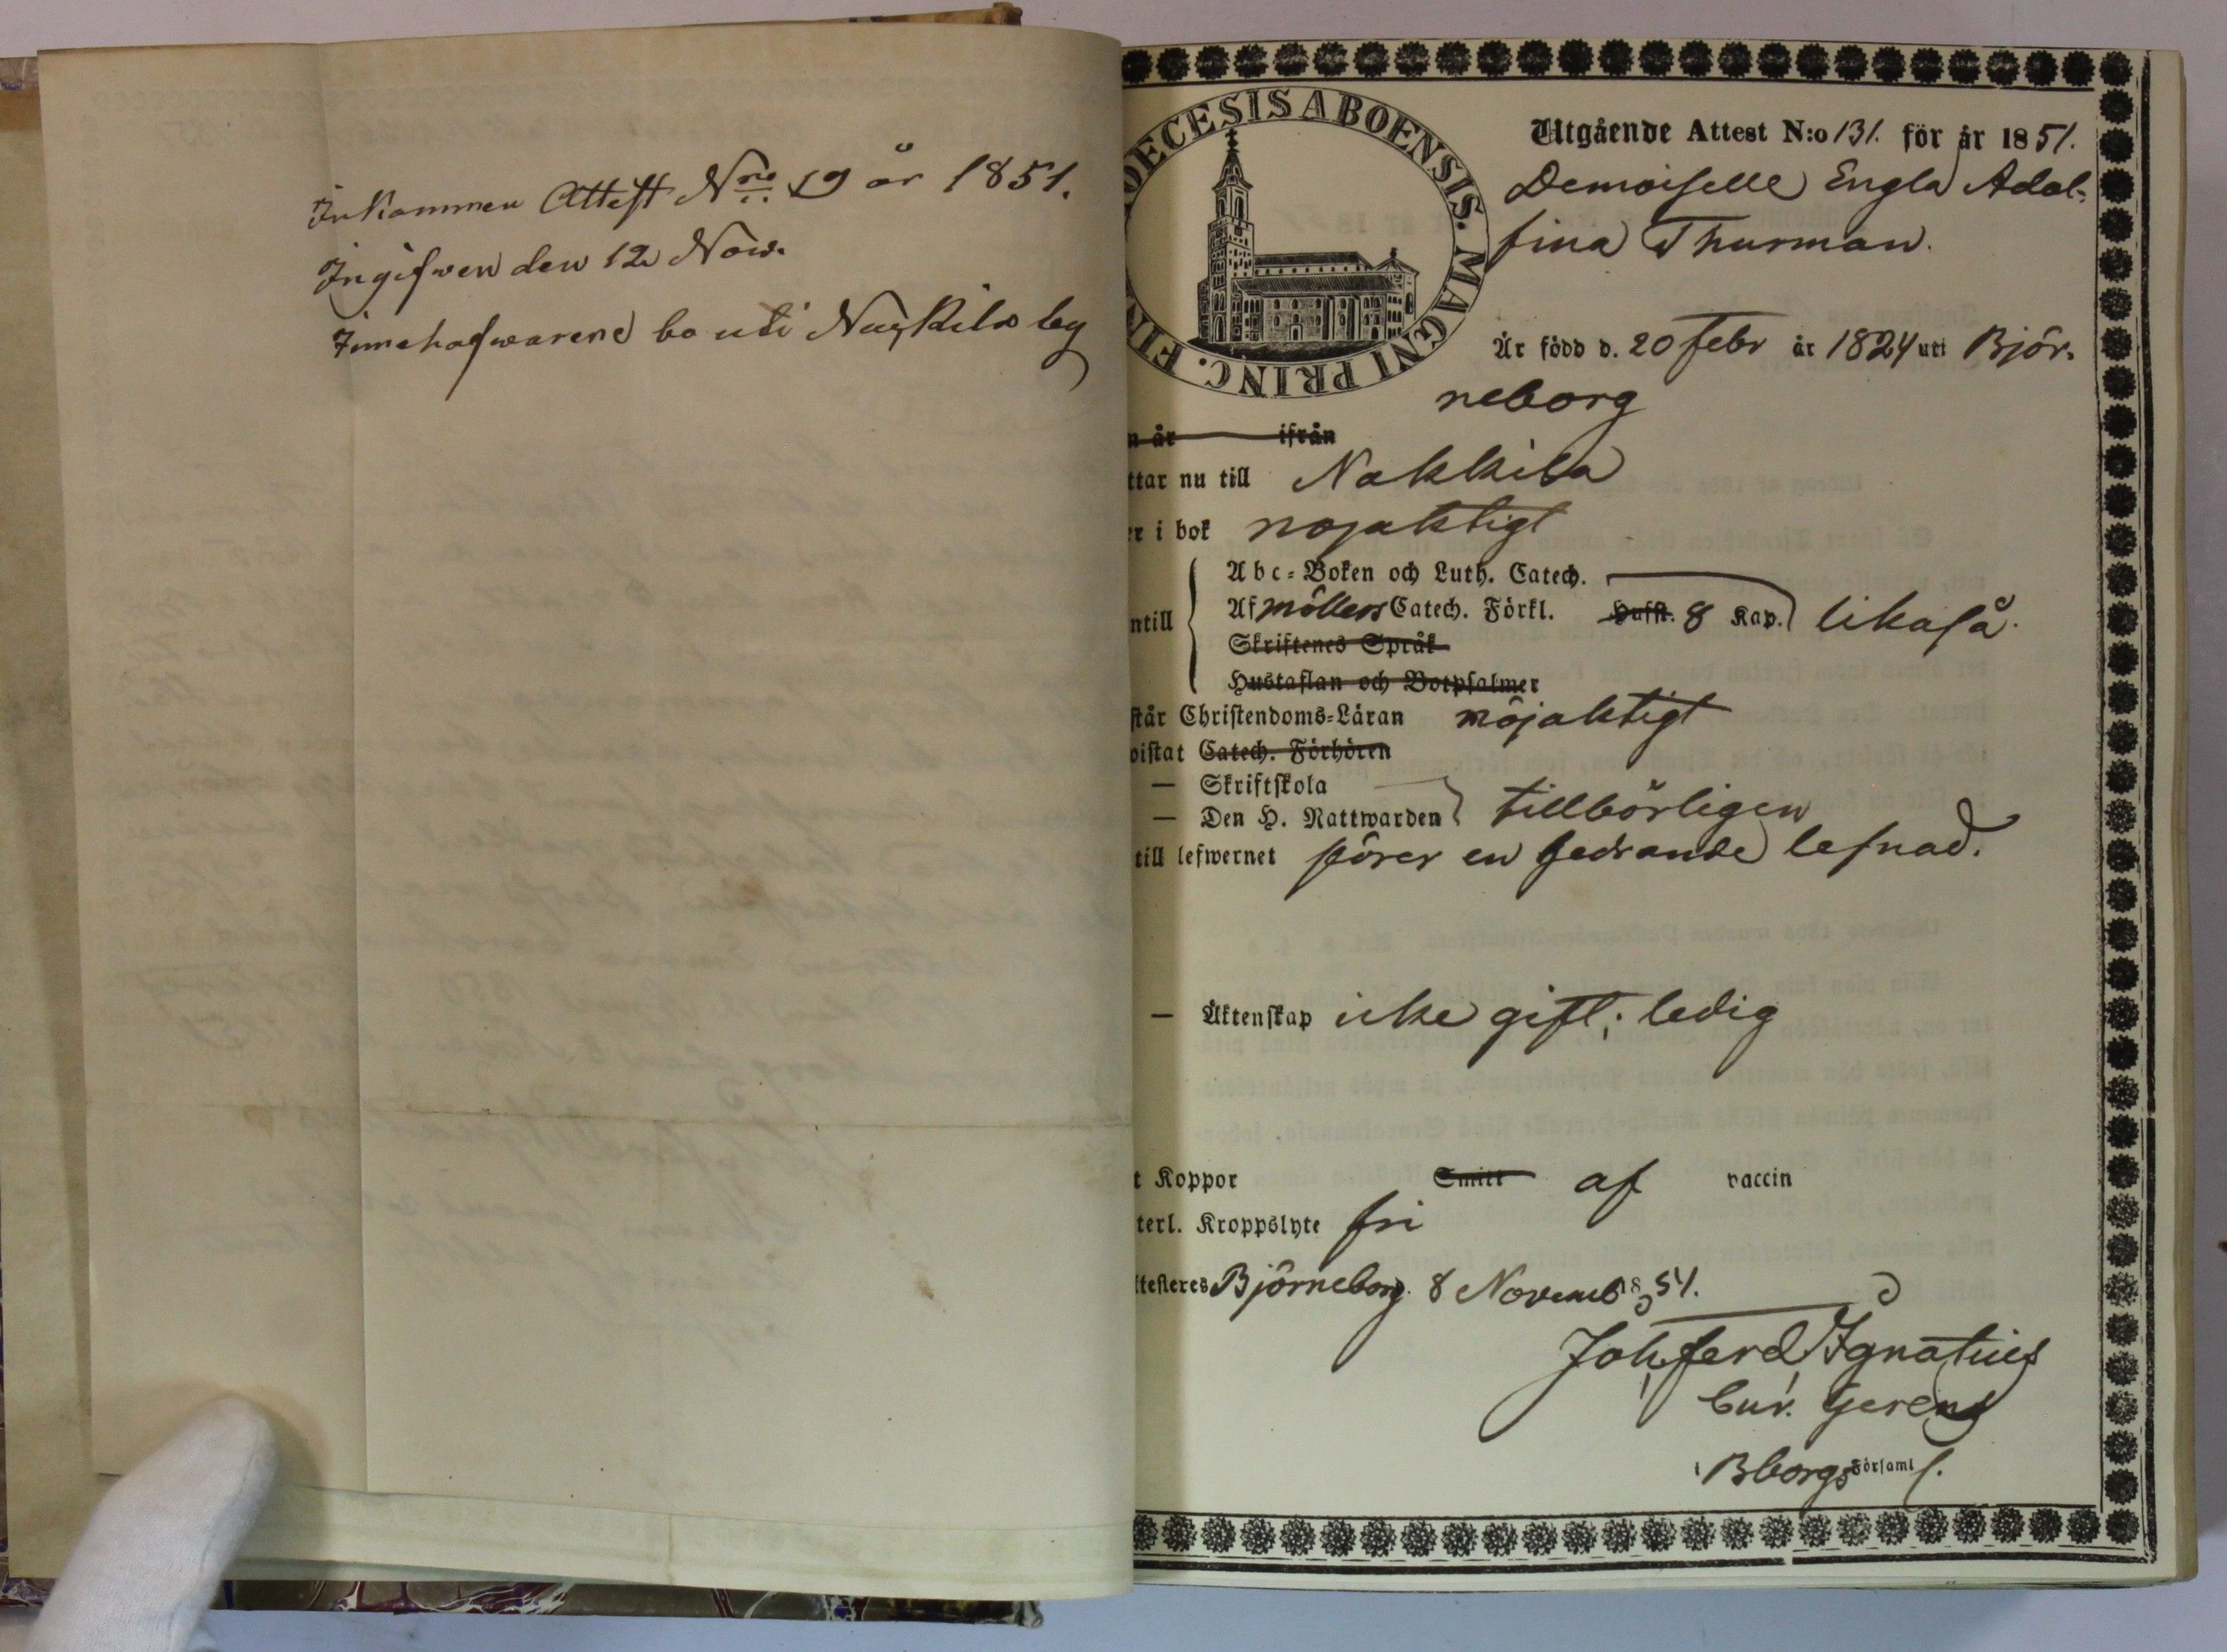 Inkommen Attest N:ro 19 år 1851.
Ingifwen den 12 Nov.
Innehafwaren bo uti by
OECESIS ABOENSIS. MAGNI PRINC. FIN
Utgående Attest N:o 131. för år 1851.
Demoiselle Engla Adol-
fina Thurman.
Är född d. 20 Febr år 1824 uti Björ-
neborg
n år ifrån
ttar nu till Nakkila
er i bok nöjaktigt
ntill
Abc-Boken och Luth. Catech.
Af Möllers Catech. Förkl. Hufst. 8 Kap. likaså.
Skriftenes Språk
Hustaflan och Botpsalmer
står Christendoms-Läran nöjaktigt
vistat Catech. Förhören
— Skriftskola
— Den H. Nattwarden tillbörligen
till lefwernet förer en hedrande lefnad.
— Äktenskap icke gift; ledig
t Koppor Smitt af vaccin
terl. Kroppslyte fri
ttesteres Björneborg. 8 Novemb 1851.
Joh. Ferd. Ignatius
Cur. Gerens
i Bborgs Församl.